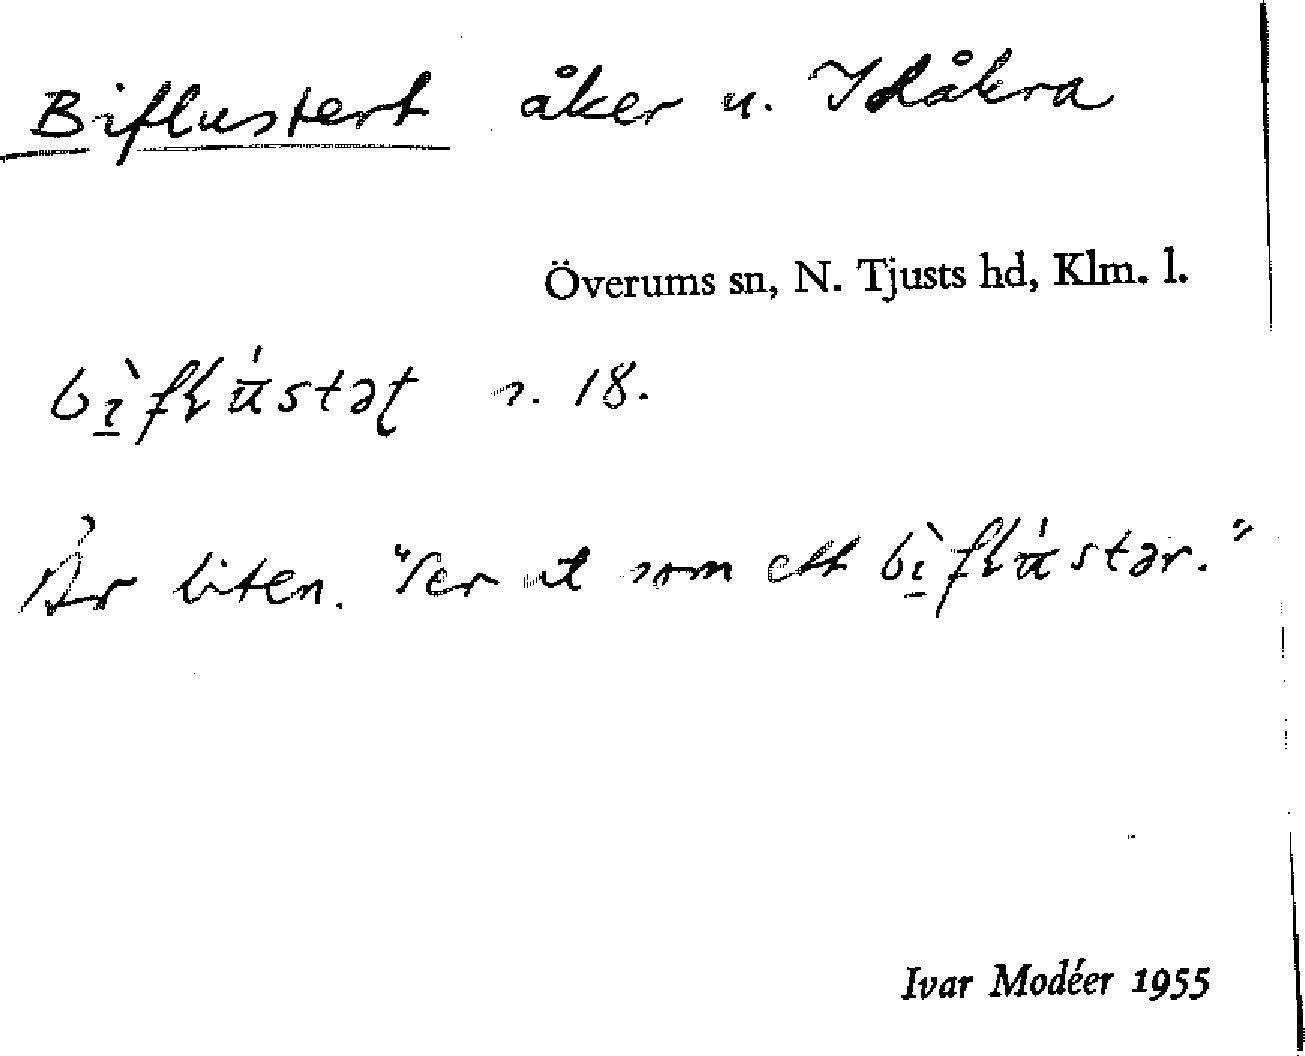 Biflustert åker u. Idåkra
Överums sn, N. Tjusts hd, Klm. l.
bì̠flú̄stəʈ s. 18.
Är liten. "Ser ut som ett bì̠flú̄stər."
Ivar Modéer 1955